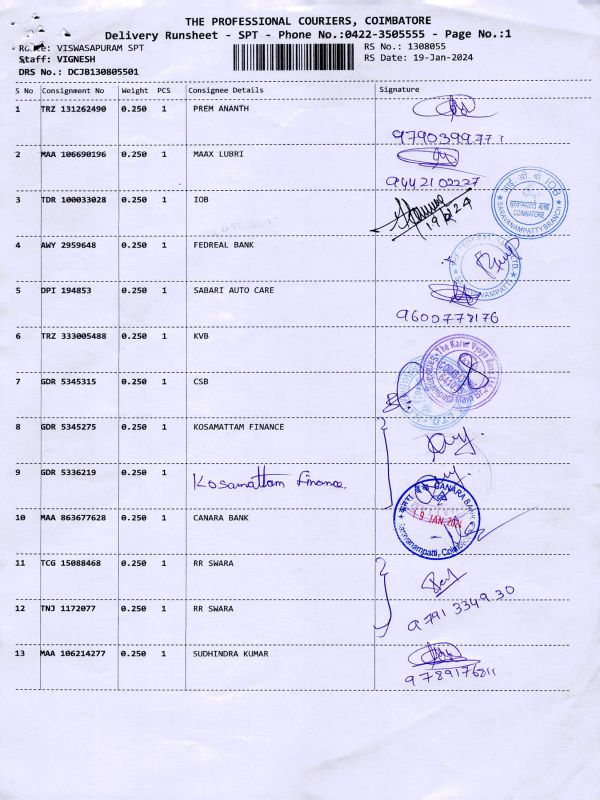 THE PROFESSIONAL COURIERS, COIMBATORE
Delivery Runsheet - SPT - Phone No.:0422-3505555 - Page No.:1
VISWASAPURAM SPT
RS No.: 1308055
Staff: VIGNESH
RS Date: 19-Jan-2024
DRS No.: DCJB130805501
S No Consignment No Weight PCS Consignee Details Signature
1 TRZ 131262490 0.250 1 PREM ANANTH
9790399771
2 MAA 106690196 0.250 1 MAAX LUBRI
9442102227
3 TDR 100033028 0.250 1 IOB
19/1/24
IOB
COIMBATORE
SARAVANAMPATTY BRANCH
4 AWY 2959648 0.250 1 FEDREAL BANK
5 DPI 194853 0.250 1 SABARI AUTO CARE
9600778176
6 TRZ 333005488 0.250 1 KVB
The Karur Vysya Bank Ltd
7 GDR 5345315 0.250 1 CSB
8 GDR 5345275 0.250 1 KOSAMATTAM FINANCE
9 GDR 5336219 0.250 1 Kosamattam Finance.
10 MAA 863677628 0.250 1 CANARA BANK
CANARA BANK
19 JAN 2024
Saravanampatti, Coimbatore
11 TCG 15088468 0.250 1 RR SWARA
12 TNJ 1172077 0.250 1 RR SWARA
9791 3349 30
13 MAA 106214277 0.250 1 SUDHINDRA KUMAR
9789176811